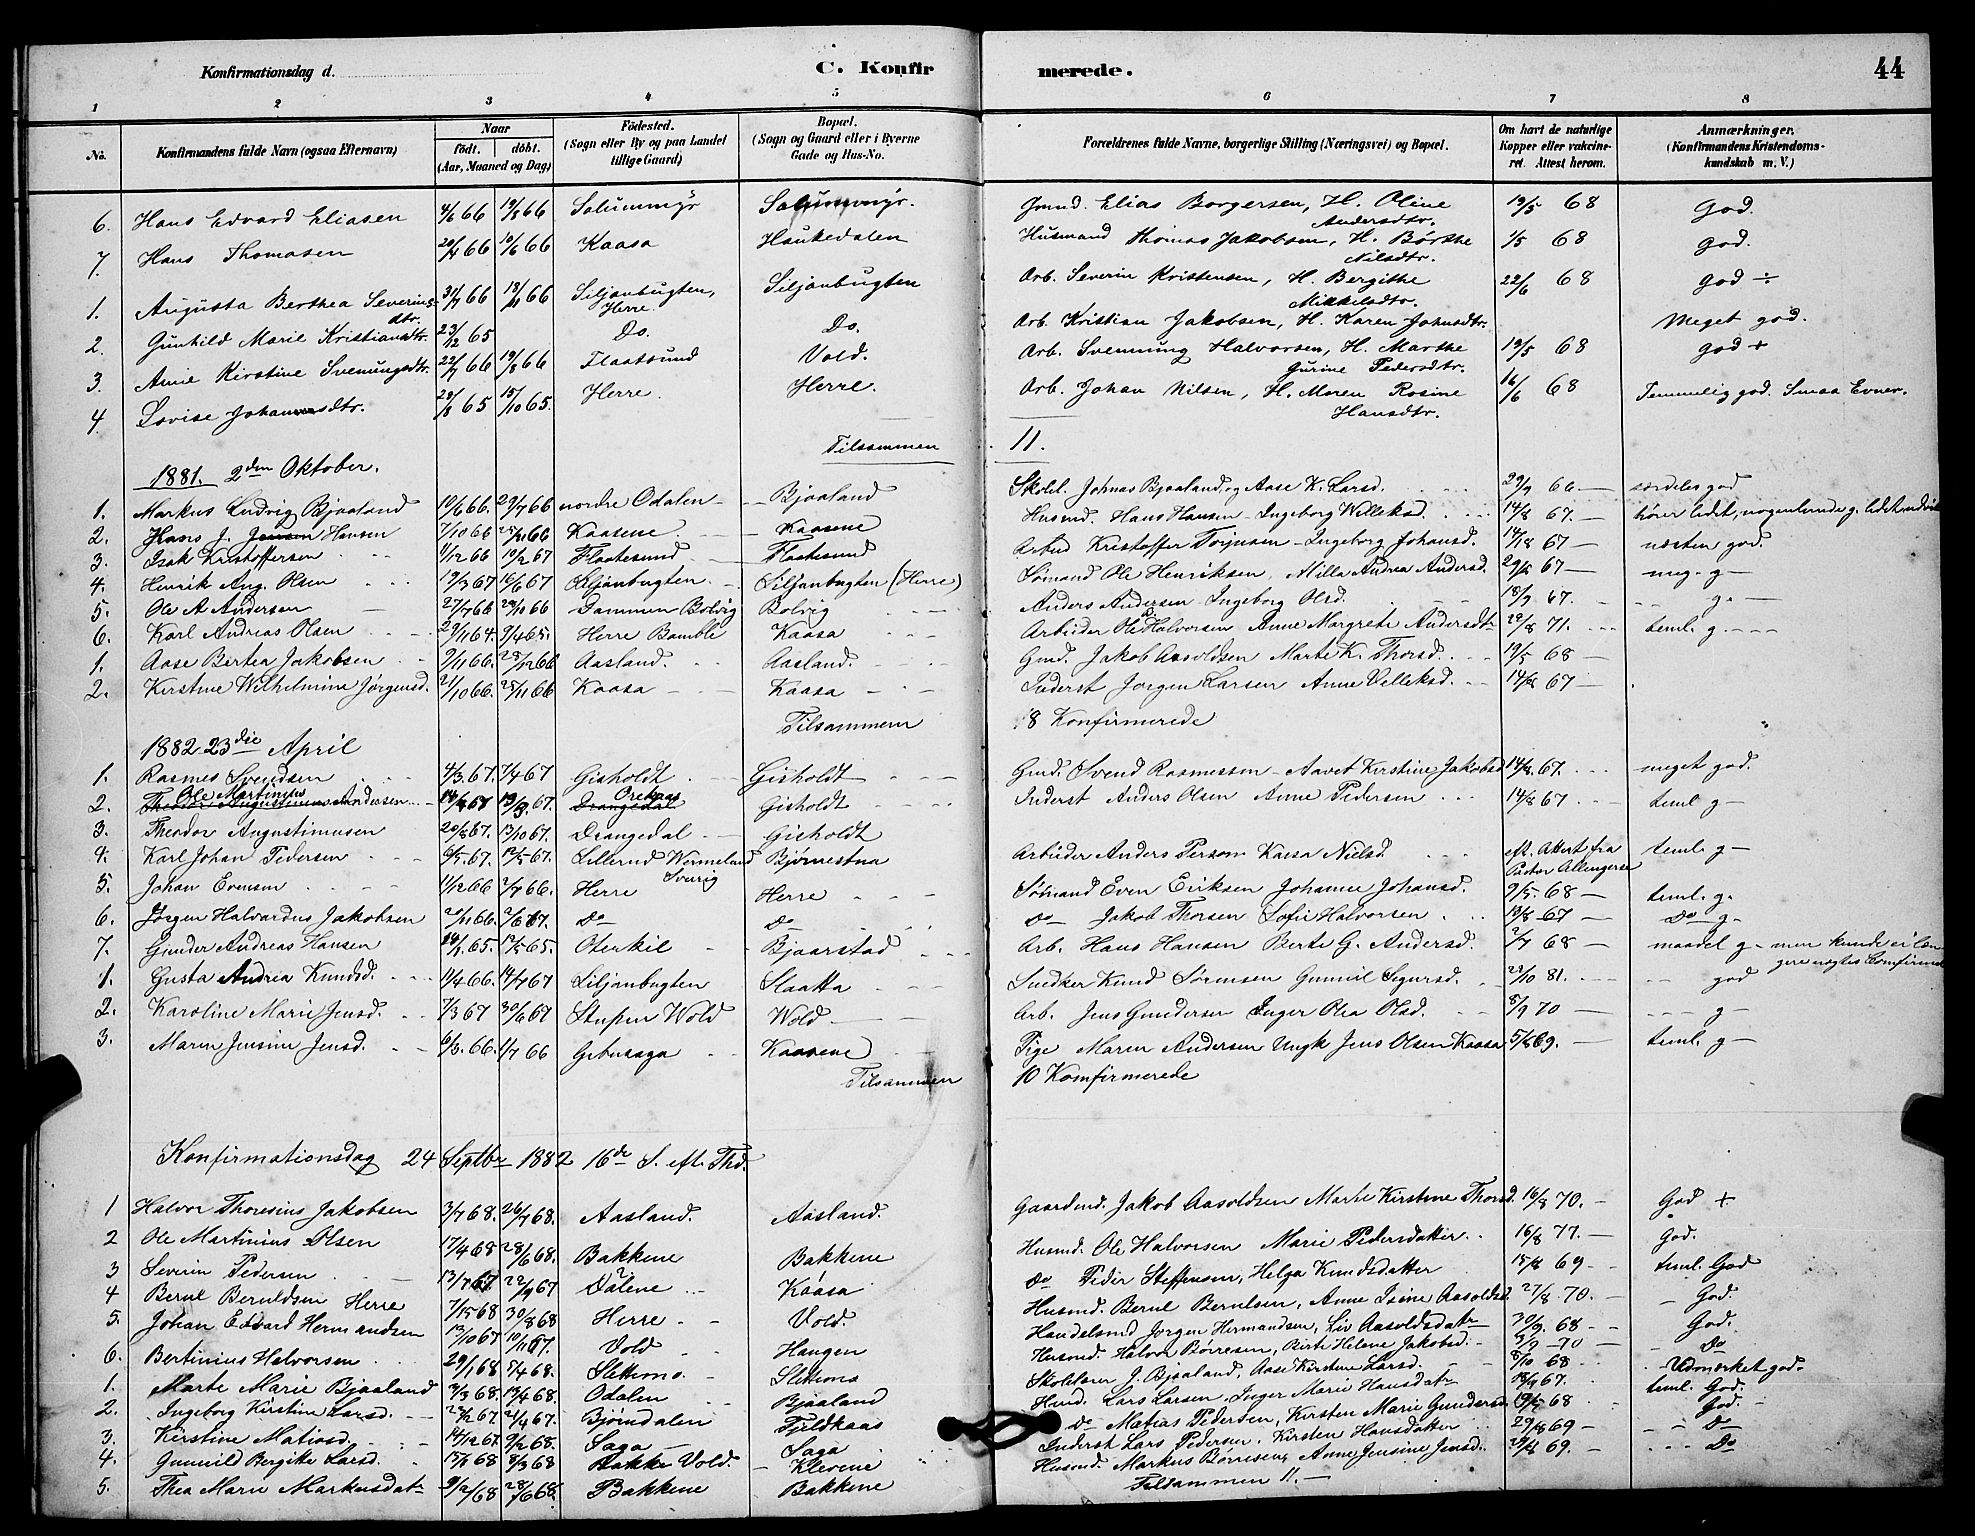 Konfirmationsdag d. C. Konfirmerede. 44
1 2 3 4 5 6 7 8
No. Konfirmandens fulde Navn (ogsaa Efternavn) Naar født. døbt. (Aar, Maaned og Dag) Födested. (Sogn eller By og paa Landet tillige Gaard) Bopæl. (Sogn og Gaard eller i Byerne Gade og Hus-No. Forældrenes fulde Navne, borgerlige Stilling (Næringsvei) og Bopæl. Om havt de naturlige Kopper eller vakcineret. Attest herom. Anmærkninger. (Konfirmandens Kristendomskundskab m. V.)
6. Hans Edvard Eliasen 4/6 66 19/8 66 Salummyr Salummyr. Grmd. Elias Borgersen, H. Oline Andersdtr. 19/5 68 God.
7. Hans Thomasen 20/4 66 10/6 66 Kaasa Haukedalen Husmand Thomas Jakobsen, H. Børthe Nilsdtr. 1/5 68 god.
1. Augusta Berthea Severinsdtr. 31/7 66 18/11 66 Siljanbugten, Herre Siljanbugten Arb. Severin Kristensen, H. Bergithe Mikkelsdtr. 22/6 68 god ÷
2. Gunhild Marie Kristiandtr. 23/12 65 Do. Do. Arb. Kristian Jakobsen, H. Karen Johnsdtr. Meget god.
3. Anne Kirstine Svenungsdtr. 22/7 66 19/8 66 Flaatsund Vold. Arb. Svennung Halvorsen, H. Marthe Gurine Pedersdtr. 19/5 68 god +
4. Lovise Johannesdtr. 29/8 65 15/10 65. Herre. Herre. Arb. Johan Nilsen, H. Maren Rosine Hansdtr. 16/6 68 Temmelig god. Smaa Evner.
Tilsammen 11.
1881. 2den Oktober.
1. Markus Ludvig Bjaaland 10/6 66. 29/7 66 nordre Odalen Bjaaland Skolel. Johnas Bjaaland og Aase K. Larsd. 29/9 66 særdeles god
2. Hans J. Jensen Hansen 7/10 66 25/11 66 Kaasene Kaasene Husmd. Hans Hansen Ingeborg Willeksd. 14/8 67. hører lidet, nogenlunde g.
3. Isak Kristoffersen 1/12 66 10/2 67 Flaatesund Flaatesund Arbed Kristoffer Torjusen Ingeborg Johansd. 14/8 67 næsten god.
4. Henrik Aug. Olsen 19/3 67 16/6 67 Siljanbugten. Siljanbugten (Herre) Sømand Ole Henriksen, Milla Andrea Andersd. 29/8 67 meg. g
5. Ole A Andersen 27/7 66 28/10 66 Dammen Bolvig Bolvig Anders Andersen Ingeborg Olsd. 18/9 67. g.
6. Karl Andreas Olsen 29/11 64. 9/4 65. Herre Bamble Kaasa Arbeider Ole Halvorsen Anne Margrete Andersdtr 22/8 71. teml. g
1. Aase Bertea Jakobsen 9/11 66. 25/12 66 Aasland. Aasland. Grmd. Jakob Aasoldsen Marte K. Thorsd. 19/5 68
2. Kirstine Wilhelmine Jørgensd. 21/10 66. 25/11 66 Kaasa Kaasa Inderst Jørgen Larsen Anne Velleksd. 14/8 67
Tilsammen 8 Konfirmerede
1882 23die April
1. Rasmus Svendsen 4/3 67. 7/4 67 Gisholdt Gisholdt Grmd. Svend Rasmussen Aavet Kirstine Jakobsd 14/8 67. meget god.
2. Theodor Augustinus Ole Martinius Andersen 14/1 67 13/3 67. Drangedal Gisholdt Inderst Anders Olsen Anne Pedersen 14/8 67 teml. g
3. Theodor Augustinusen 20/8 67. 13/10 67. Drangedal Gisholdt
4. Karl Johan Pedersen 6/5 67. 12/5 67. Lillerud Wermeland Sverig Bjørnestua Arbeider Anders Person Kaesa Nielsd. Attest fra Pastor teml. g
5. Johan Evensen 1/12 66 2/7 66. Herre Herre Sømand Even Eriksen Johanne Johansd. 9/5 68 teml. g.
6. Jørgen Halvardus Jakobsen 20/11 66. 2/6 67. Do Do Do Jakob Thorsen Sofie Halvorsen 13/8 67 Do g
7. Gunder Andreas Hansen 24/1 65. 17/5 65. Oterkil Bjaarstad Arb. Hans Hansen Berte G. Andersd. 2/7 68 maadel g men kunde ei længere nægtes Confirmat
1. Gusta Andrea Knudsd. 11/4 66. 14/7 67 Siljanbugten Slaatta Snedker Knud Sørensen Gunnil Sigursd. 22/10 81. god
2. Karoline Marie Jensd. 7/3 67 30/6 67 Stufen Wold Wold Arb. Jens Gundersen Inger Olea Olsd. 8/9 70 g
3. Maren Jensine Jensd. 6/3 66. 1/7 66 Gebusaga Kaasene Pige Maren Andersen Ungk Jens Olsen Kaasa 5/8 69. teml. g
Tilsammen 10 Komfirmerede
Konfirmationsdag 24 Septbr 1882 16de S. eft. Thd.
1 Halvor Thoresius Jakobsen 3/7 68. 26/7 68. Aasland. Aasland. Gaardmd. Jakob Aasoldsen Marte Kirstine Thorsd. 16/8 70. God +
2 Ole Martinius Olsen 17/4 68 28/6 68. Bakkene Bakkene Husmd. Ole Halvorsen Marie Pedersdatter. 16/8 77. God.
3 Severin Pedersen 13/7 67 22/9 67 Dalene Kaasa Do Peder Steffensen, Helga Knudsdatter 15/8 69 teml. God
4 Berul Beruldsen Herre 7/5 68 30/8 68 Herre Vold. Husmd. Berul Berulsen, Anne Isine Aasoldsd. 27/8 70. God.
5. Johan Edvard Hermandsen 13/10 67 10/11 67. Vold Haugen Handelsmd Jørgen Hermandsen, Liv Aasoldsdatr 30/9. 68 God.
6. Bertinius Halvorsen 29/1 68 7/4 68. Slettemo Slettemo Husmd. Halvor Børresen, Birte Helene Jakobsd. 5/9 70 Do
1. Marte Marie Bjaaland 2/3 68. 13/4 68. Odalen Bjaaland Skolelærer J. Bjaaland, Aase Kirstine Larsd. 8/10 68 Udmærket god.
2. Ingeborg Kirstine Larsd. 27/2 67. 21/4 67. Bjørndalen Fjeldkaas Husmd. Lars Larsen, Inger Marie Hansdatr 18/9 67. teml. God.
3. Kirstine Matiasd. 14/12 67. 9/2 68. Saga Saga Do Matias Pedersen, Kirsten Marie Gundersd. 19/5 68 God.
4. Gunnild Bergitte Larsd. 15/1 68 8/3 68 Bakke Vold. Klevene Inderst Lars Pedersen, Kirsten Hansdatter 29/8 69 Do
5. Thea Marie Markusdatr 9/2 68 28/6 68. Bakkene Bakkene Husmd. Markus Børresen, Anne Jensine Jensd. 29/8 69. Do
Tilsammen 11.